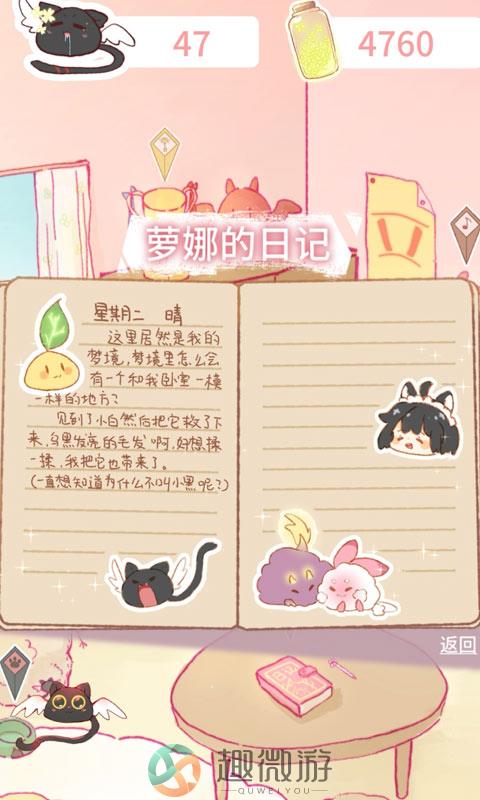 47
4760
萝娜的日记
星期二 晴
这里居然是我的
梦境,梦境里怎么会
有一个和我卧室一模
一样的地方?
见到了小白然后把它救了下
来,乌黑发亮的毛发啊,好想揉
一揉,我把它也带来了。
(一直想知道为什么不叫小黑呢?)
返回
趣微游
QUWEIYOU